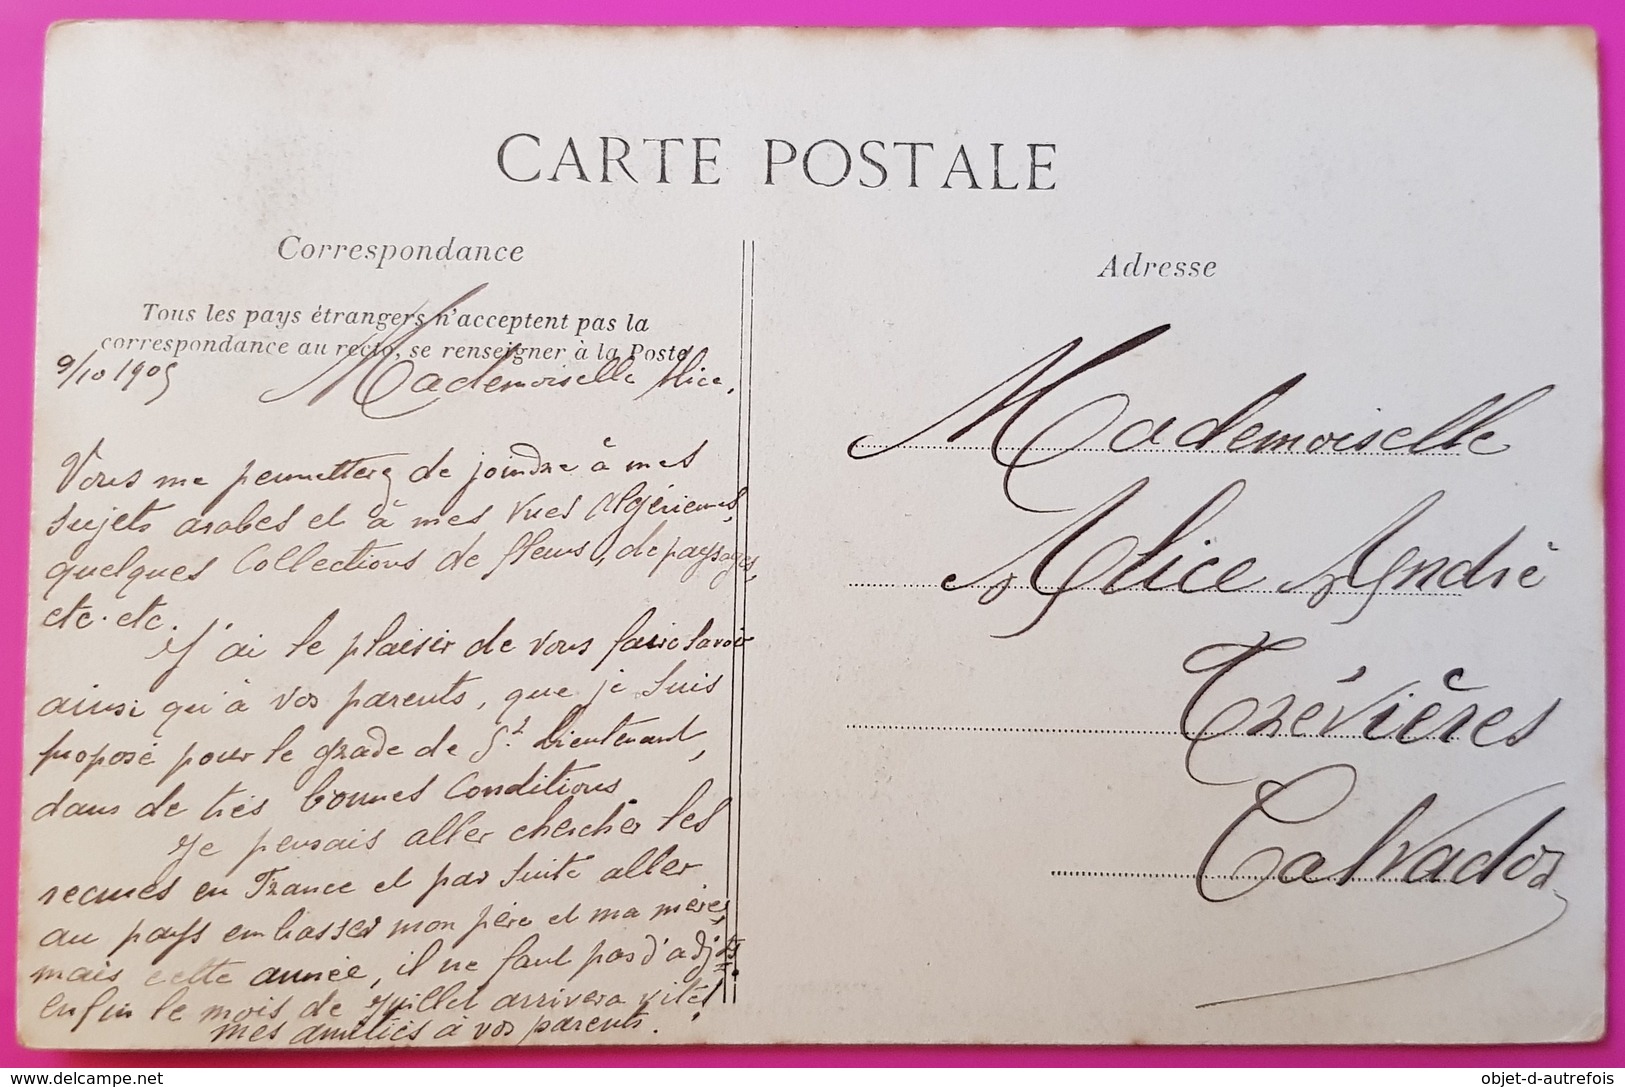 CARTE POSTALE
Correspondance
Tous les pays étrangers n'acceptent pas la
correspondance au recto, se renseigner à la Poste
9/10 1905 Mademoiselle Alice,
Vous me permetterez de joindre à mes
sujets arabes et à mes vues algériennes,
quelques collections de fleurs, de paysages,
etc. etc.
J'ai le plaisir de vous faire savoir
ainsi qu'à vos parents, que je suis
proposé pour le grade de S.t Lieutenant,
dans de très bonnes conditions.
Je pensais aller chercher les
recrues en France et par suite aller
au pays embrasser mon père et ma mère,
mais cette année, il ne faut pas d'adjts.
enfin le mois de Juillet arrivera vite!
mes amitiés à vos parents.
Adresse
Mademoiselle
Alice André
Trévières
Calvados
delcampe.net
objet-d-autrefois